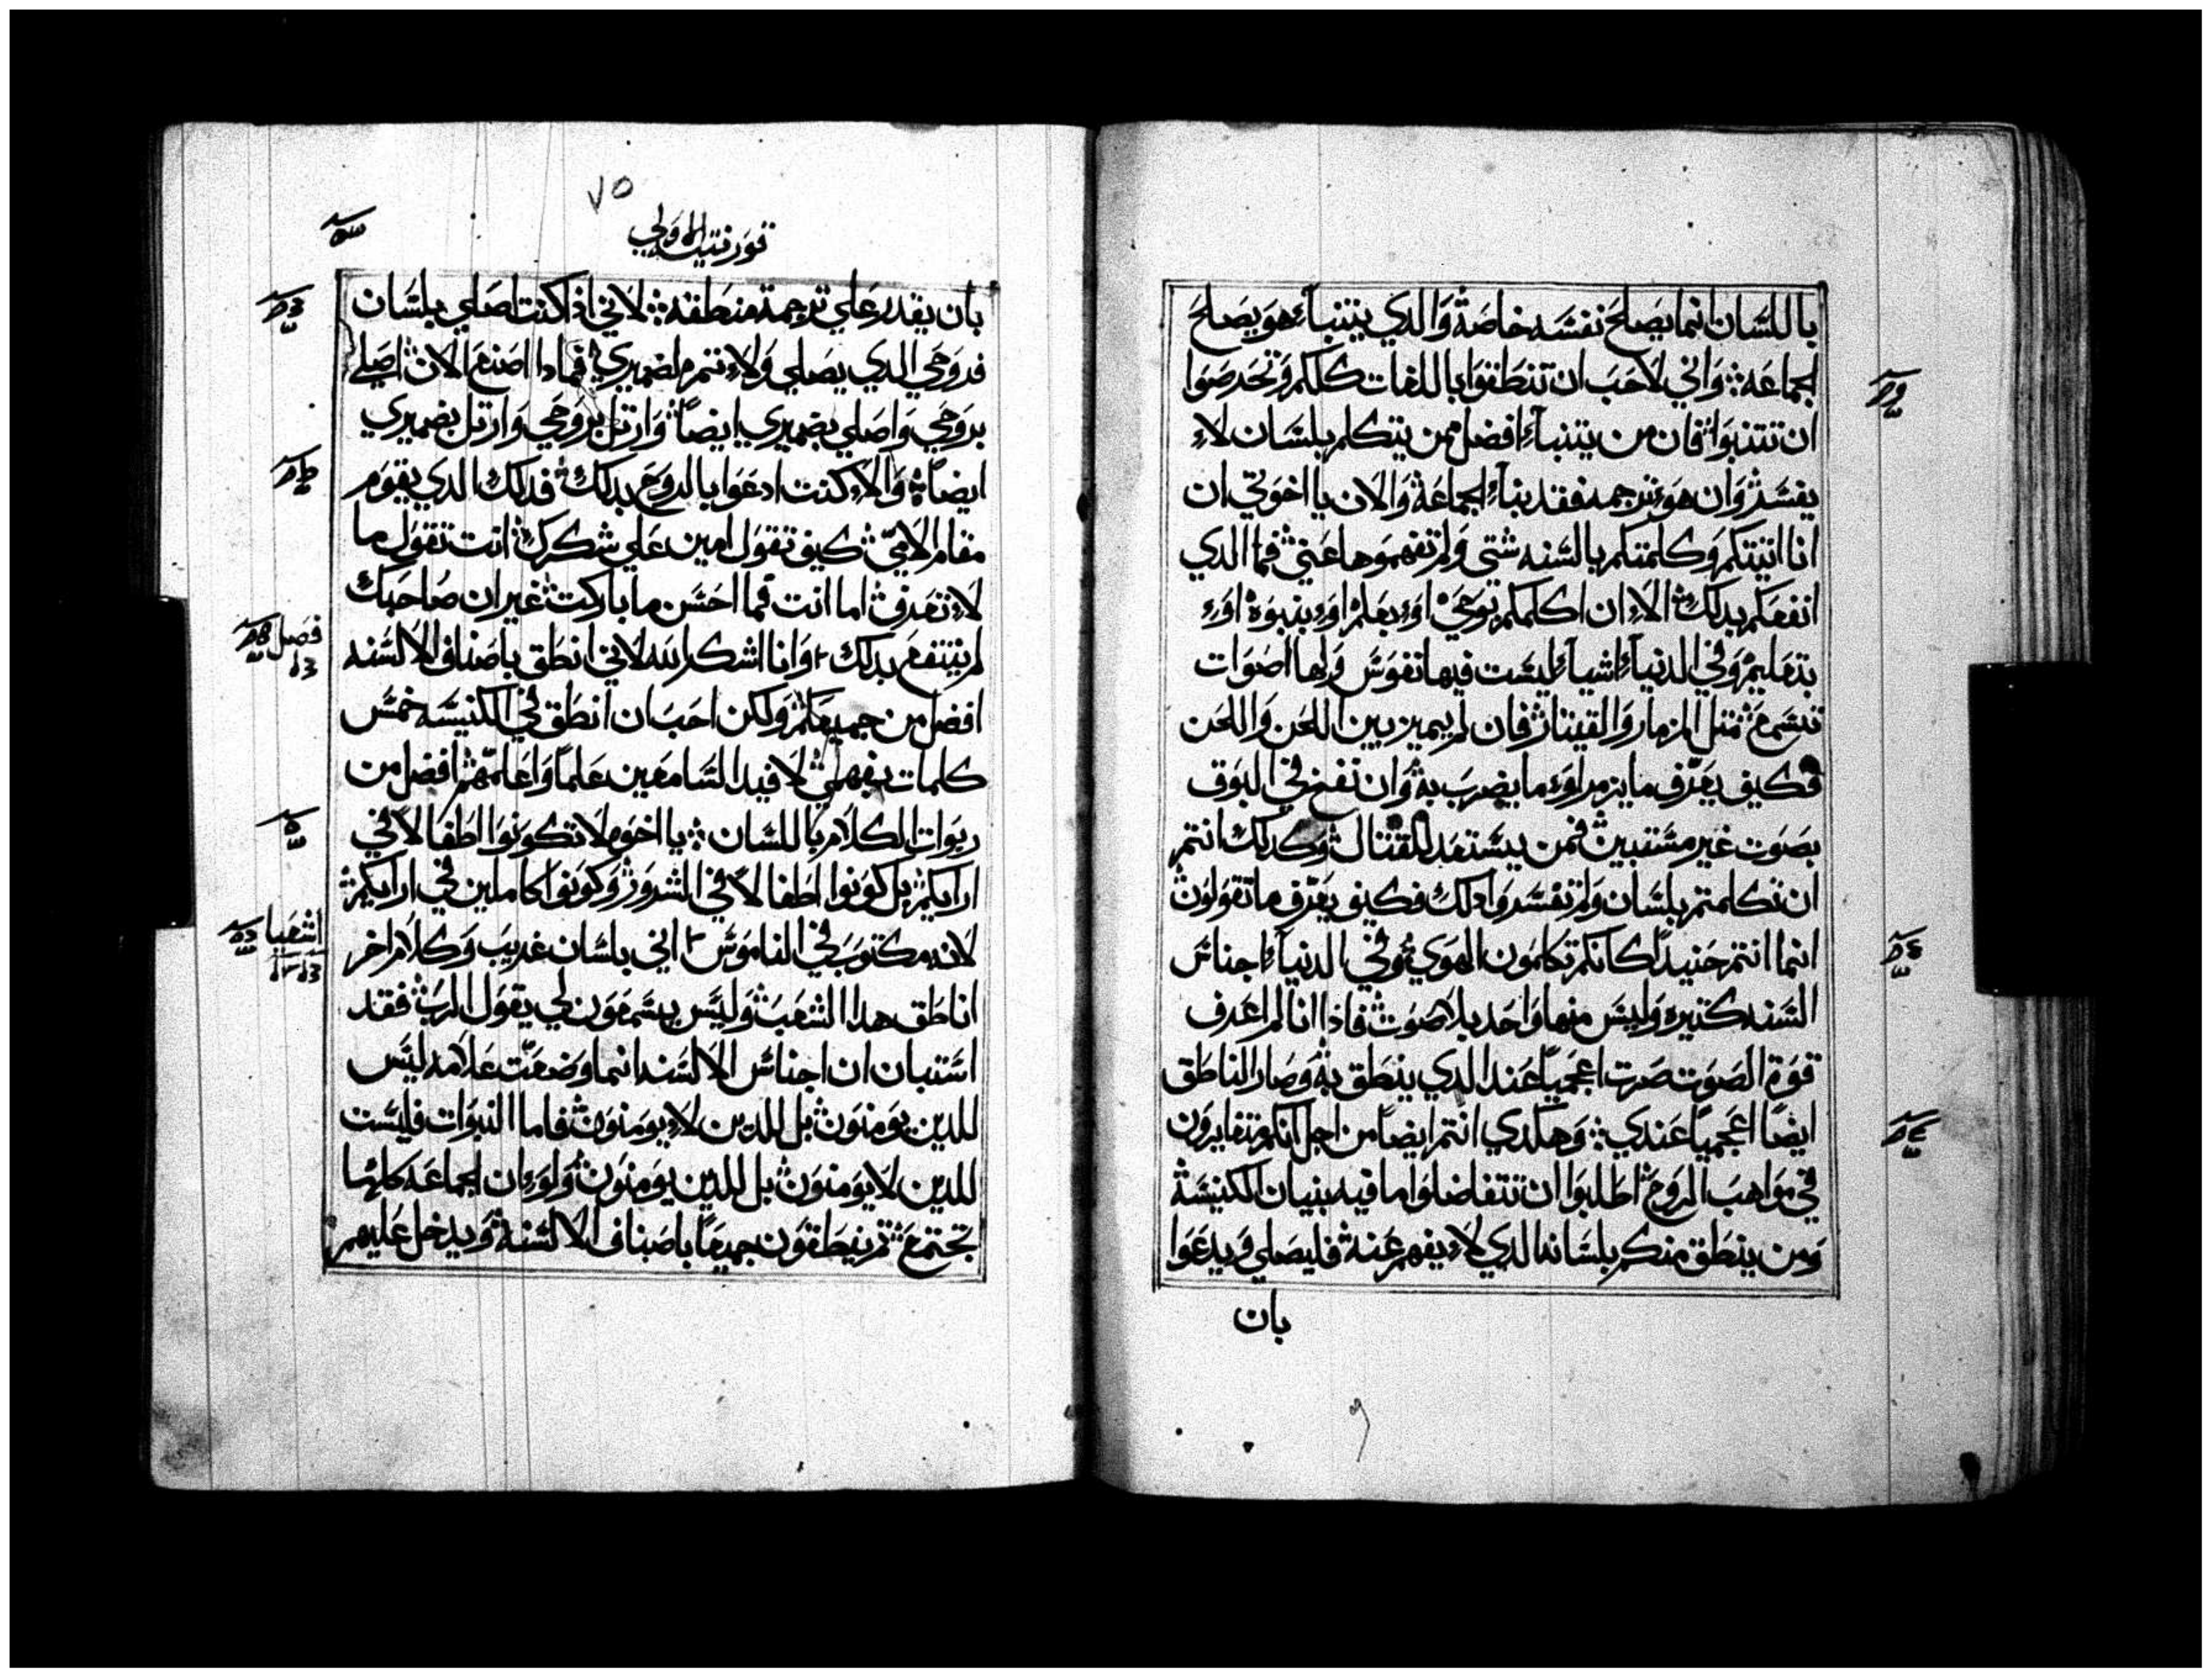 باللسان انما يصلح نفسه خاصة والدي يتنبأ هو يصلح
الجماعه واني لاحب ان تنطقوا باللغات كلكم وتحرصوا
ان تتنبوا فان من يتنبأ افضل ممن يتكلم بلسان لاء
يفسر وان هو ترجمه فقد بنأ الجماعة والان يا اخوتي ان
انا اتيتكم وكلمتكم بالسنه شتي ولم تفهموها عني فما الدي
انفعكم بدلك الاء ان اكلمكم بوحي اوء بعلم اوء بنبوه اوء
بتعليم وفي الدنيأ اشيأ ليست فيها نفوس ولها اصوات
تسمع متل المزمار والقيتار فان لم يميز بين اللحن واللحن
فكيف يعرف ما يزمر اوء ما يضرب به وان نفخ في البوق
بصوت غير مستبين فمن يستعد للقتال وكدلك انتم
ان تكلمتم بلسان ولم تفسروا دلك فكيف يعرف ما تقولون
انما انتم حنيدا كانكم تكلمون الهوي وفي الدنيأ اجناس
السنه كتيره وليس منها واحد بلا صوت فاذا انا لم اعرف
قوة الصوت صرت اعجميا عند الدي ينطق به وصار الناطق
ايضا اعجميا عندي وهكدي انتم ايضا من اجل انكم تغايرون
في مواهب الروح اطلبوا ان تتفاضلوا ما فيه بنيان الكنيسة
ومن ينطق منكم بلسانه الدي لاء يفهم عنه فليصلي ويدعوا
بان
٧٥
قورنتيه الاولي
بان يقدر علي ترجمة منطقه لاني اذا كنت اصلي بلسان
فروحي الدي يصلي ولاء تتمر لضميري فمادا اصنع الان اصلي
بروحي واصلي بضميري ايضا وارتل بروحي وارتل بضميري
ايضا والاء كنت ادعوا بالروح بدلك فدلك الدي يقوم
مقام الامي كيف تقول امين علي شكرك انت تقول ما
لاء تعرف اما انت فما احسن ما باركت غير ان صاحبك
لم ينتفع بدلك وانا اشكر الله لاني انطق باصناف الالسنه
افضل من جميعكم ولكن احب ان انطق في الكنيسه خمس
كلمات بفهمي لافيد السامعين علما واعلمهم افضل من
ربوات الكلام باللسان يا اخوه لا تكونوا اطفالا في
ارايكم بل كونوا اطفالا في الشرور وكونوا كاملين في ارايكم
لانه مكتوب في الناموس اني بلسان غريب وكلام اخر
اناطق هدا الشعب وليس يسمعون لي يقول الرب فقد
استبان ان اجناس الالسنه انما وضعت علامه ليس
للدين يومنون بل للدين لاء يومنون فاما النبوات فليست
للدين لا يومنون بل للدين يومنون ولوء ان الجماعه كلها
تجتمع تم ينطقون جميعا باصناف الالسنة ويدخل عليهم
فصل
اشعيا